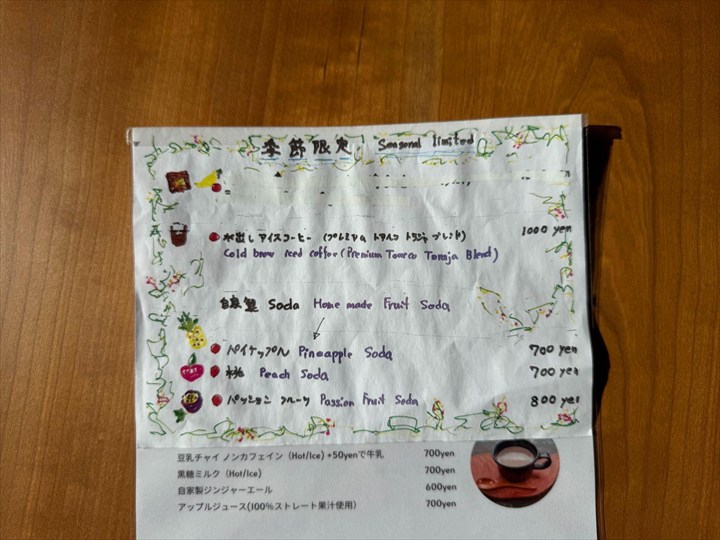 季節限定 Seasonal limited
水出しアイスコーヒー (プレミアム トアルコ トラジャ ブレンド) 1000 yen
Cold brew iced coffee (Premium Toarco Toraja Blend)
自家製 Soda Home made Fruit Soda
パイナップル Pineapple Soda 700 yen
桃 Peach Soda 700 yen
パッション フルーツ Passion Fruit Soda 800 yen
豆乳チャイ ノンカフェイン (Hot/Ice) +50yenで牛乳 700yen
黒糖ミルク (Hot/Ice) 700yen
自家製ジンジャーエール 600yen
アップルジュース(100%ストレート果汁使用) 700yen